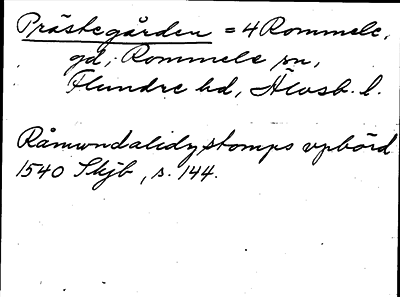 Prästegården = 4 Rommele,
gd, Rommele sn,
Flundre hd, Älvsb. l.
Råmundalidz stomps vpbörd
1540 Skjb, s. 144.